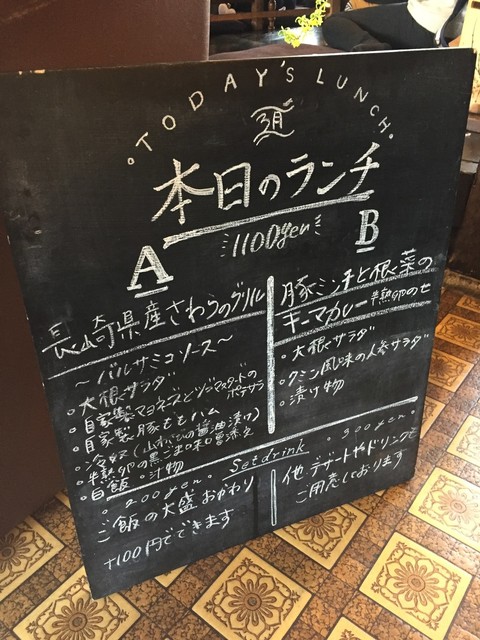 TODAY'S LUNCH
3月
本日のランチ
1100yen
A
長崎県産さわらのグリル
〜バルサミコソース〜
○大根サラダ
○自家製マヨネーズとツブマスタードのポテサラ
○自家製豚ももハム
○冷奴(山わさびの醤油漬け)
○半熟卵の黒ごま味噌添え
○白飯 ○汁物
B
豚ミンチと根菜の
キーマカレー 半熟卵のせ
○大根サラダ
○クミン風味の人参サラダ
○漬け物
○200yen○ Set drink ○300yen○
ご飯の大盛 おかわり
+100円でできます
他 デザートやドリンクも
ご用意しております